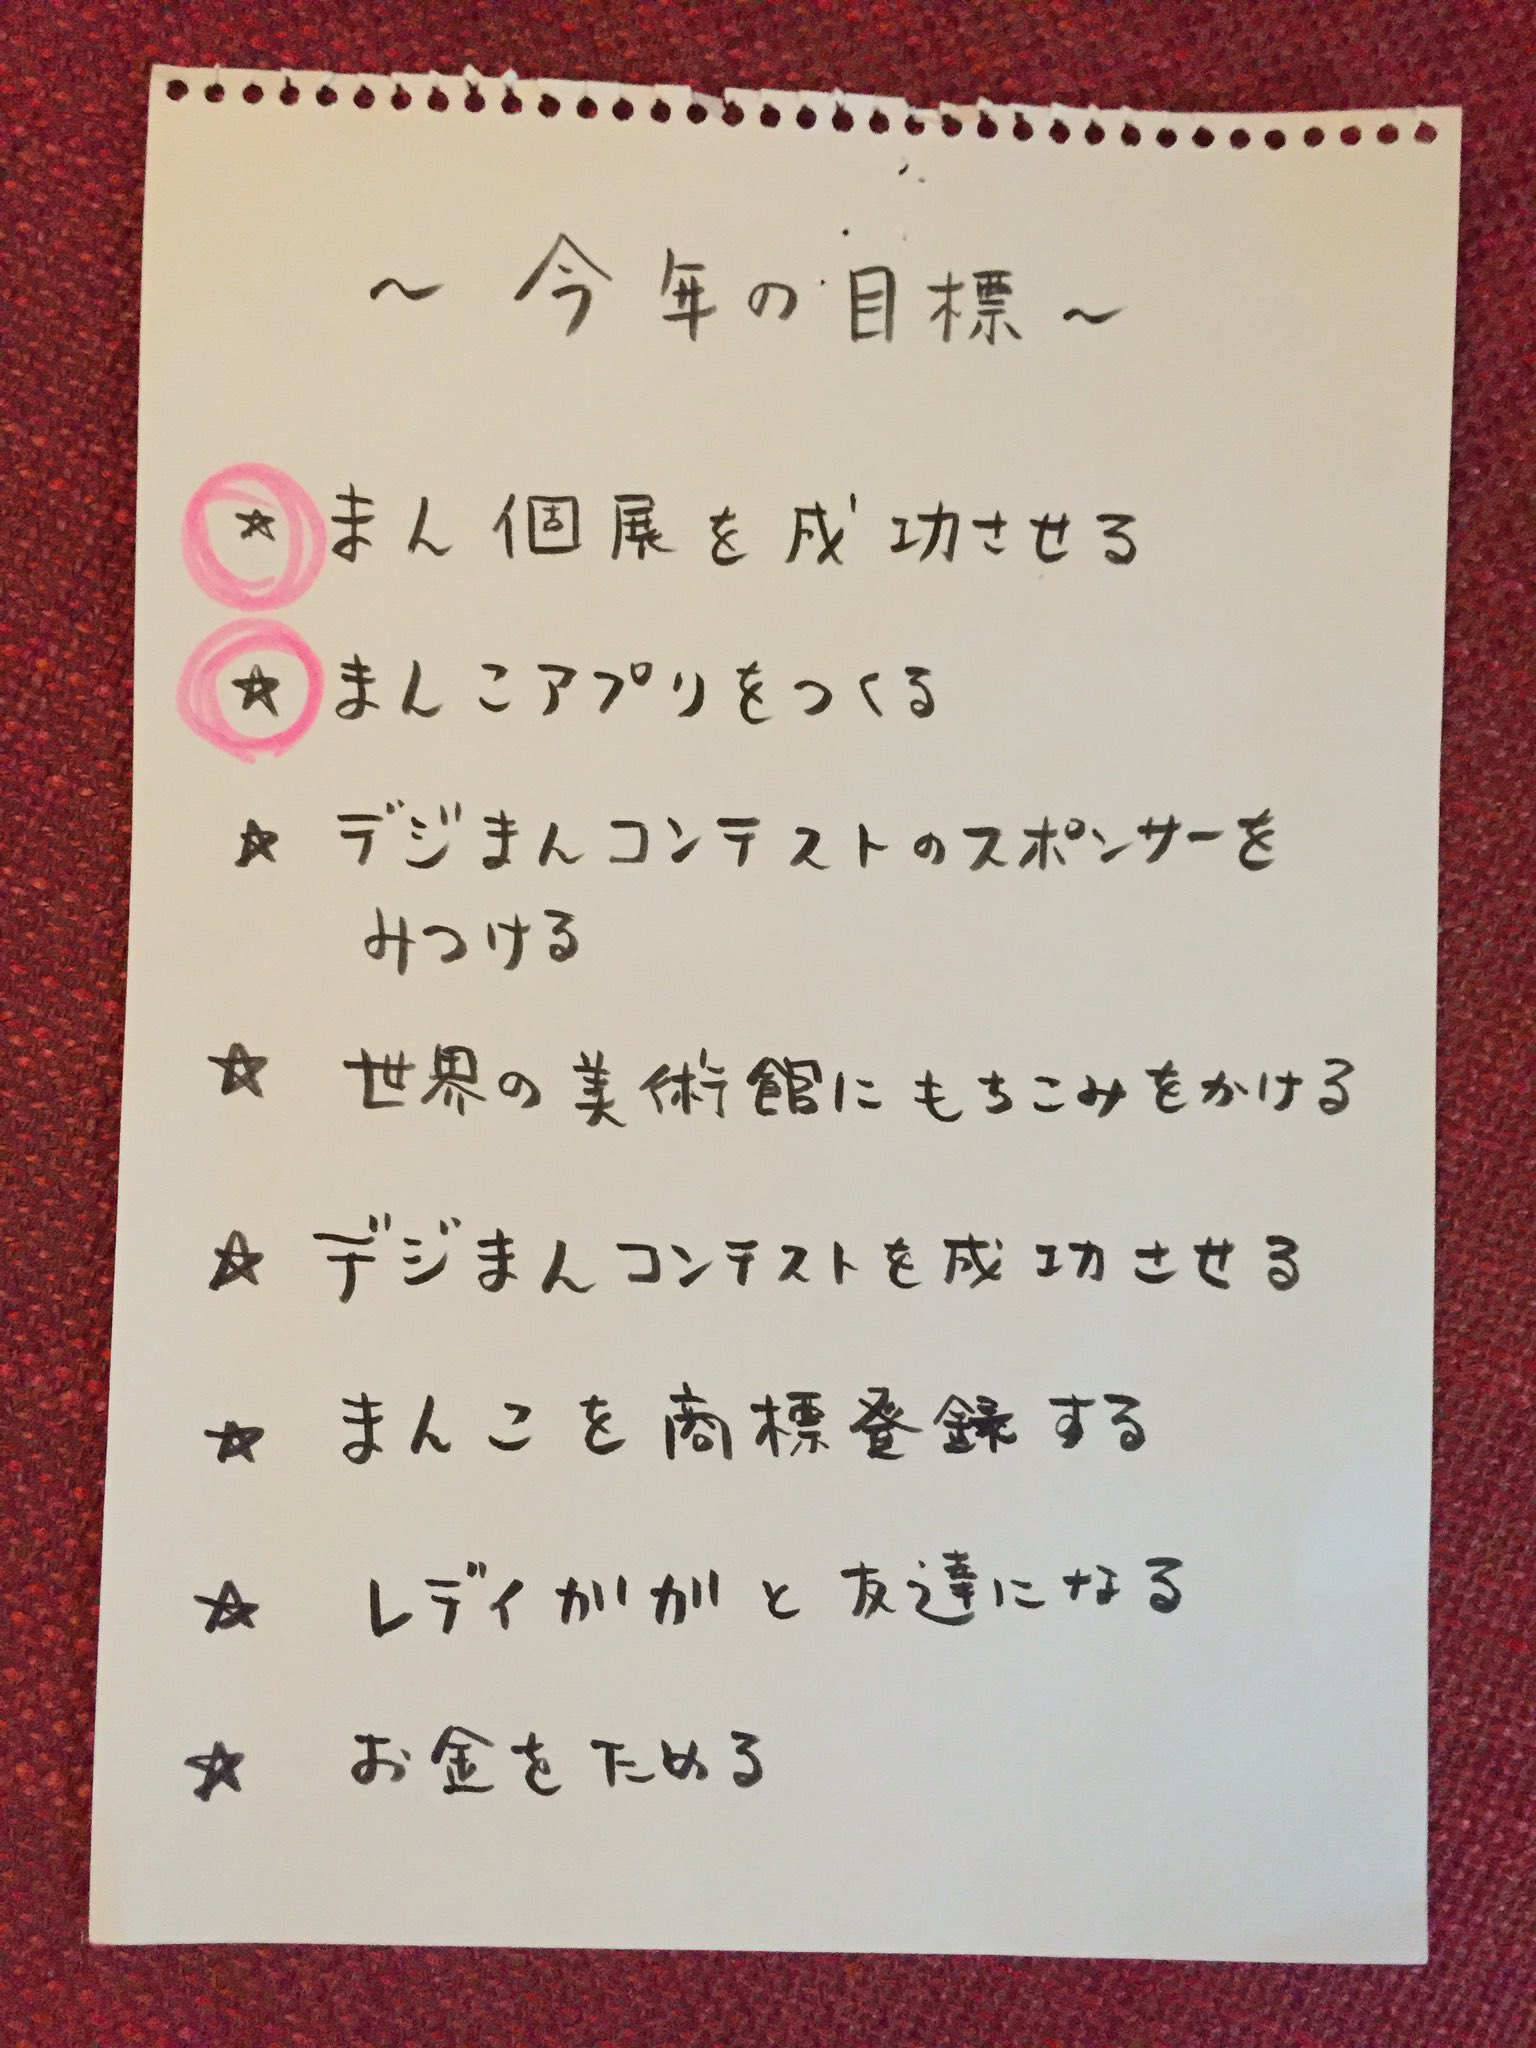 ～今年の目標～
☆ まん個展を成功させる
☆ まんこアプリをつくる
☆ デジまんコンテストのスポンサーを
みつける
☆ 世界の美術館にもちこみをかける
☆ デジまんコンテストを成功させる
☆ まんこを商標登録する
☆ レディガガと友達になる
☆ お金をためる